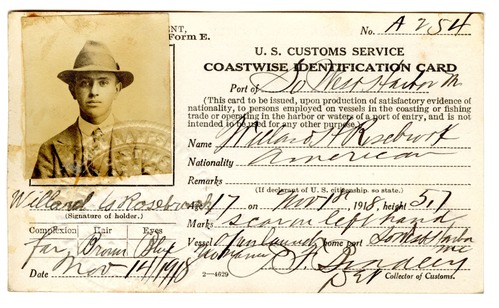 ENT,
Form E.
No. A 254
U. S. CUSTOMS SERVICE
COASTWISE IDENTIFICATION CARD
Port of So West Harbor Me
(This card to be issued, upon production of satisfactory evidence of
nationality, to persons employed on vessels in the coasting or fishing
trade or operating in the harbor or waters of a port of entry, and is not
intended to be used for any other purpose.)
Name Willard
Nationality American
Remarks
(If declarant of U. S. citizenship, so state.)
Willard
(Signature of holder.)
Age 17 on Nov 1st 1918, height 5.7
Marks scar on left hand
Complexion Hair Eyes
Fair Brown Blue
Vessel home port So West Harbor Me
Date Nov 14/1918
2—4629
Dep Collector of Customs.